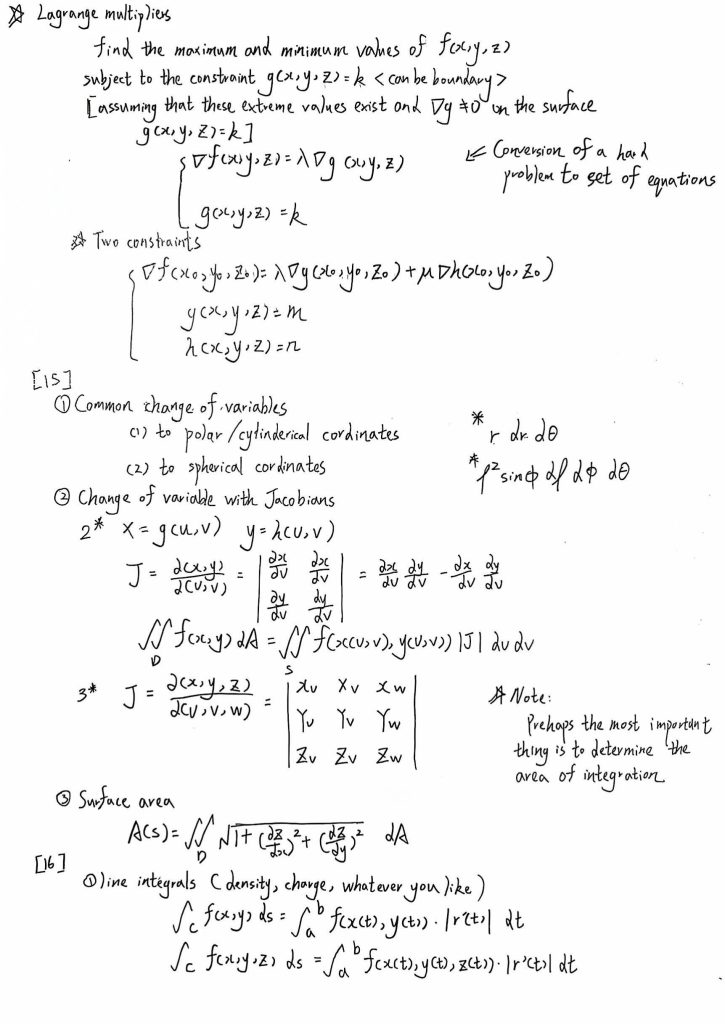 ☆ Lagrange multipliers
find the maximum and minimum values of f(x,y,z)
subject to the constraint g(x,y,z)=k <can be boundary>
[assuming that these extreme values exist and ∇g≠0 on the surface
g(x,y,z)=k]
{ ∇f(x,y,z)=λ∇g(x,y,z)
g(x,y,z)=k
⇙ Conversion of a hard
problem to set of equations
☆ Two constraints
{ ∇f(x₀,y₀,z₀)=λ∇g(x₀,y₀,z₀)+μ∇h(x₀,y₀,z₀)
g(x,y,z)=m
h(x,y,z)=n
[15]
① Common change of variables
(1) to polar/cylinderical cordinates * r dr dθ
(2) to spherical cordinates * ρ²sinφ dρ dφ dθ
② Change of variable with Jacobians
2* x=g(u,v) y=h(u,v)
J = ∂(x,y)/∂(u,v) = | ∂x/∂u ∂x/∂v ; ∂y/∂u ∂y/∂v | = ∂x/∂u ∂y/∂v - ∂x/∂v ∂y/∂u
∬_D f(x,y) dA = ∬_S f(x(u,v), y(u,v)) |J| du dv
3* J = ∂(x,y,z)/∂(u,v,w) = | xu xv xw ; yu yv yw ; zu zv zw |
☆ Note:
Prehaps the most important
thing is to determine the
area of integration
③ Surface area
A(s)=∬_D √(1+(∂z/∂x)²+(∂z/∂y)²) dA
[16]
① line integrals (density, charge, whatever you like)
∫_C f(x,y) ds = ∫_a^b f(x(t), y(t))·|r'(t)| dt
∫_C f(x,y,z) ds = ∫_a^b f(x(t), y(t), z(t))·|r'(t)| dt